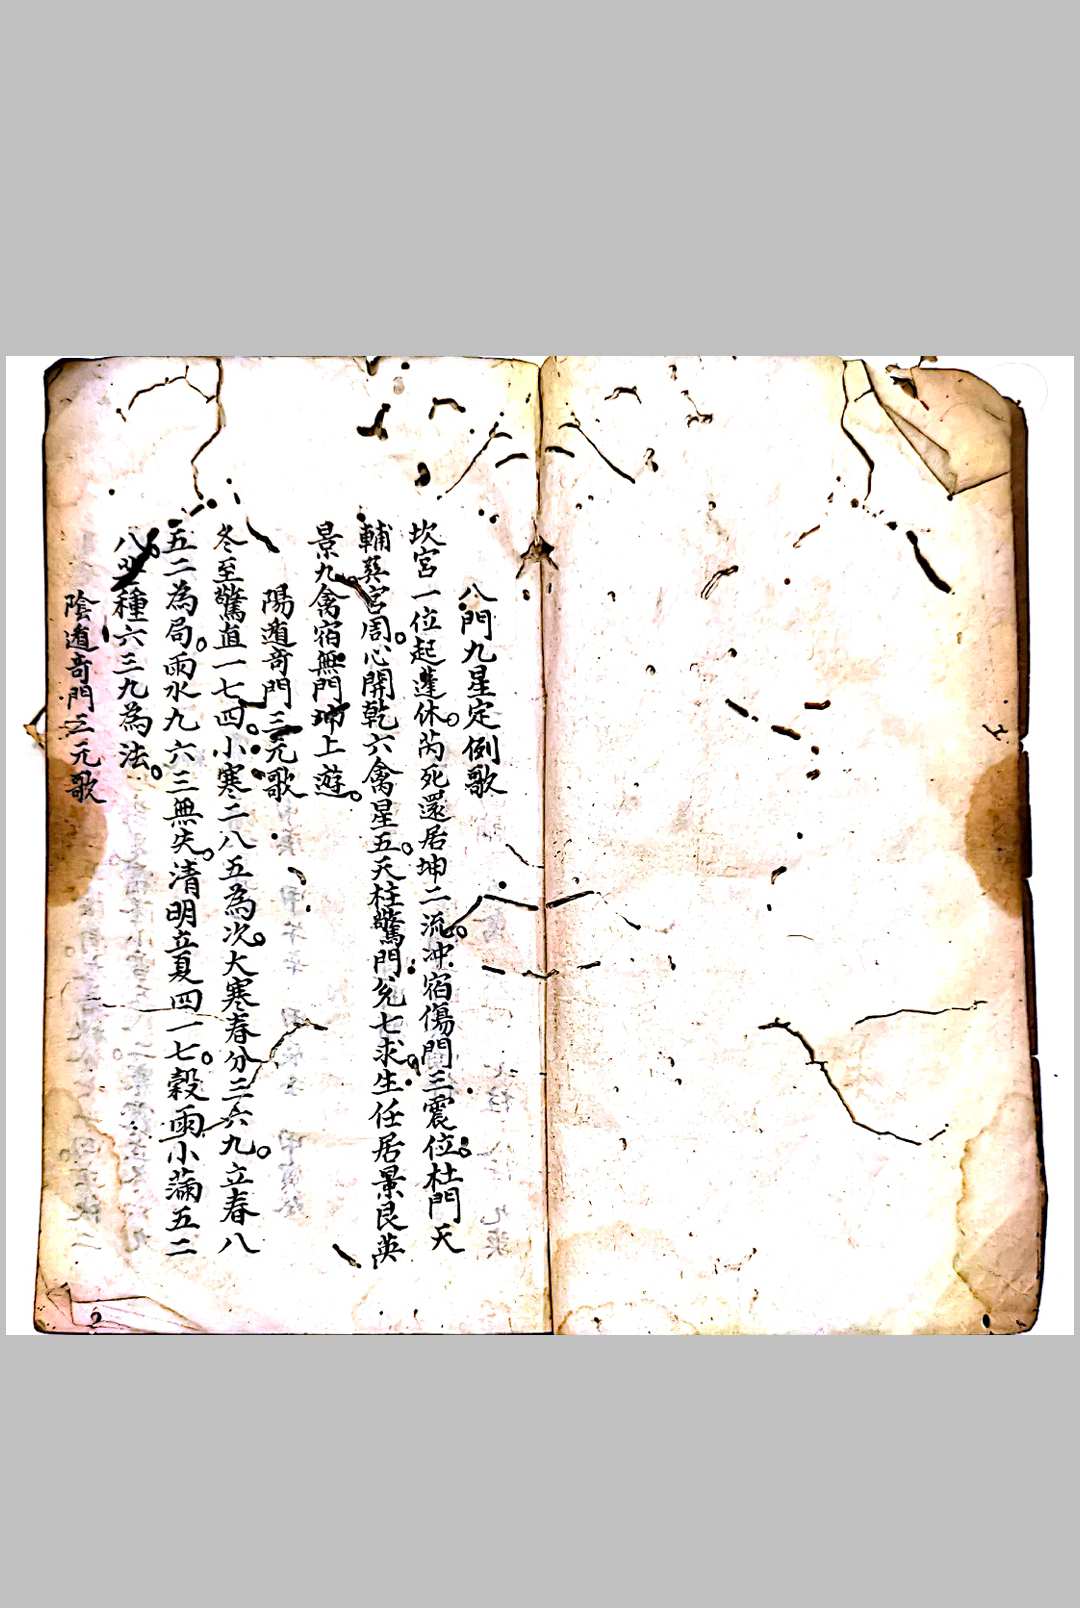 八門九星定例歌
坎宮一位起蓬休。芮死還居坤二流。冲宿傷門三震位。杜門天
輔巽宮周。心開乾六禽星五。天柱驚門兌七求。生任居景艮英
景九禽宿無門坤上遊。
陽遁竒門三元歌
冬至驚直一七四。小寒二八五為次。大寒春分三六九。立春八
五二為局。雨水九六三無失。清明立夏四一七。穀雨小滿五二
八。芒種六三九為法。
陰遁竒門三元歌
2